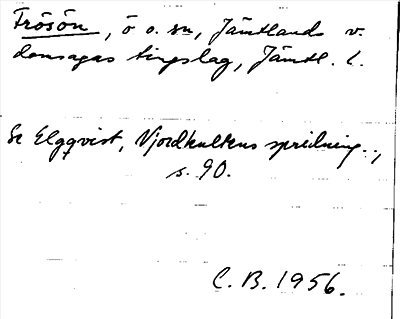 Frösön, ö o. sn, Jämtlands v.
domsagas tingslag, Jämtl. l.
Se Elgqvist, Njordkultens spridning.,
s. 90.
C. B. 1956.